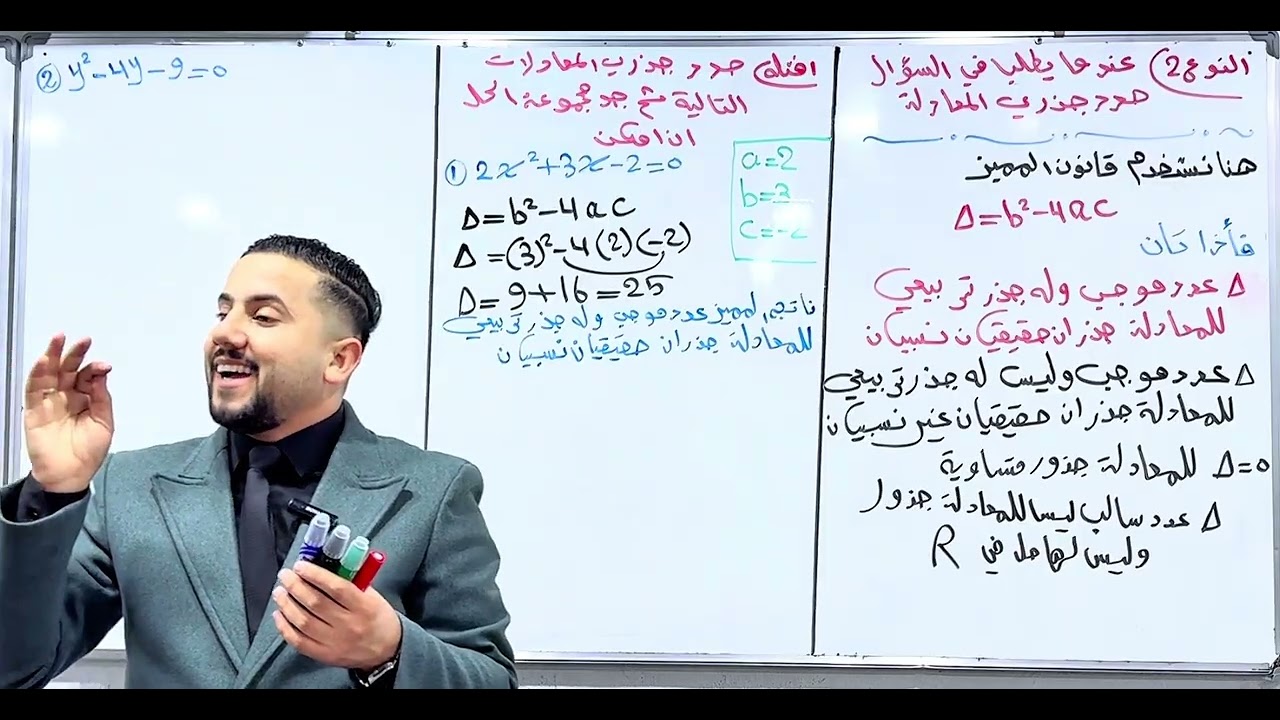 النوع 2) عندما يطلب في السؤال
حدد جذري المعادلة
هنا نستخدم قانون المميز
Δ=b²-4ac
فأذا كان
Δ عدد موجب وله جذر تربيعي
للمعادلة جذران حقيقيان نسبيان
Δ عدد موجب وليس له جذر تربيعي
للمعادلة جذران حقيقيان غير نسبيان
Δ=0 للمعادلة جذور متساوية
Δ عدد سالب ليس للمعادلة جذور
وليس لها حل في R
امثلة حدد جذري المعادلات
التالية ثم جد مجموعة الحل
ان امكن
① 2x²+3x-2=0
a=2
b=3
c=-2
Δ=b²-4ac
Δ=(3)²-4(2)(-2)
Δ=9+16=25
ناتج المميز عدد موجب وله جذر تربيعي
للمعادلة جذران حقيقيان نسبيان
② y²-4y-9=0